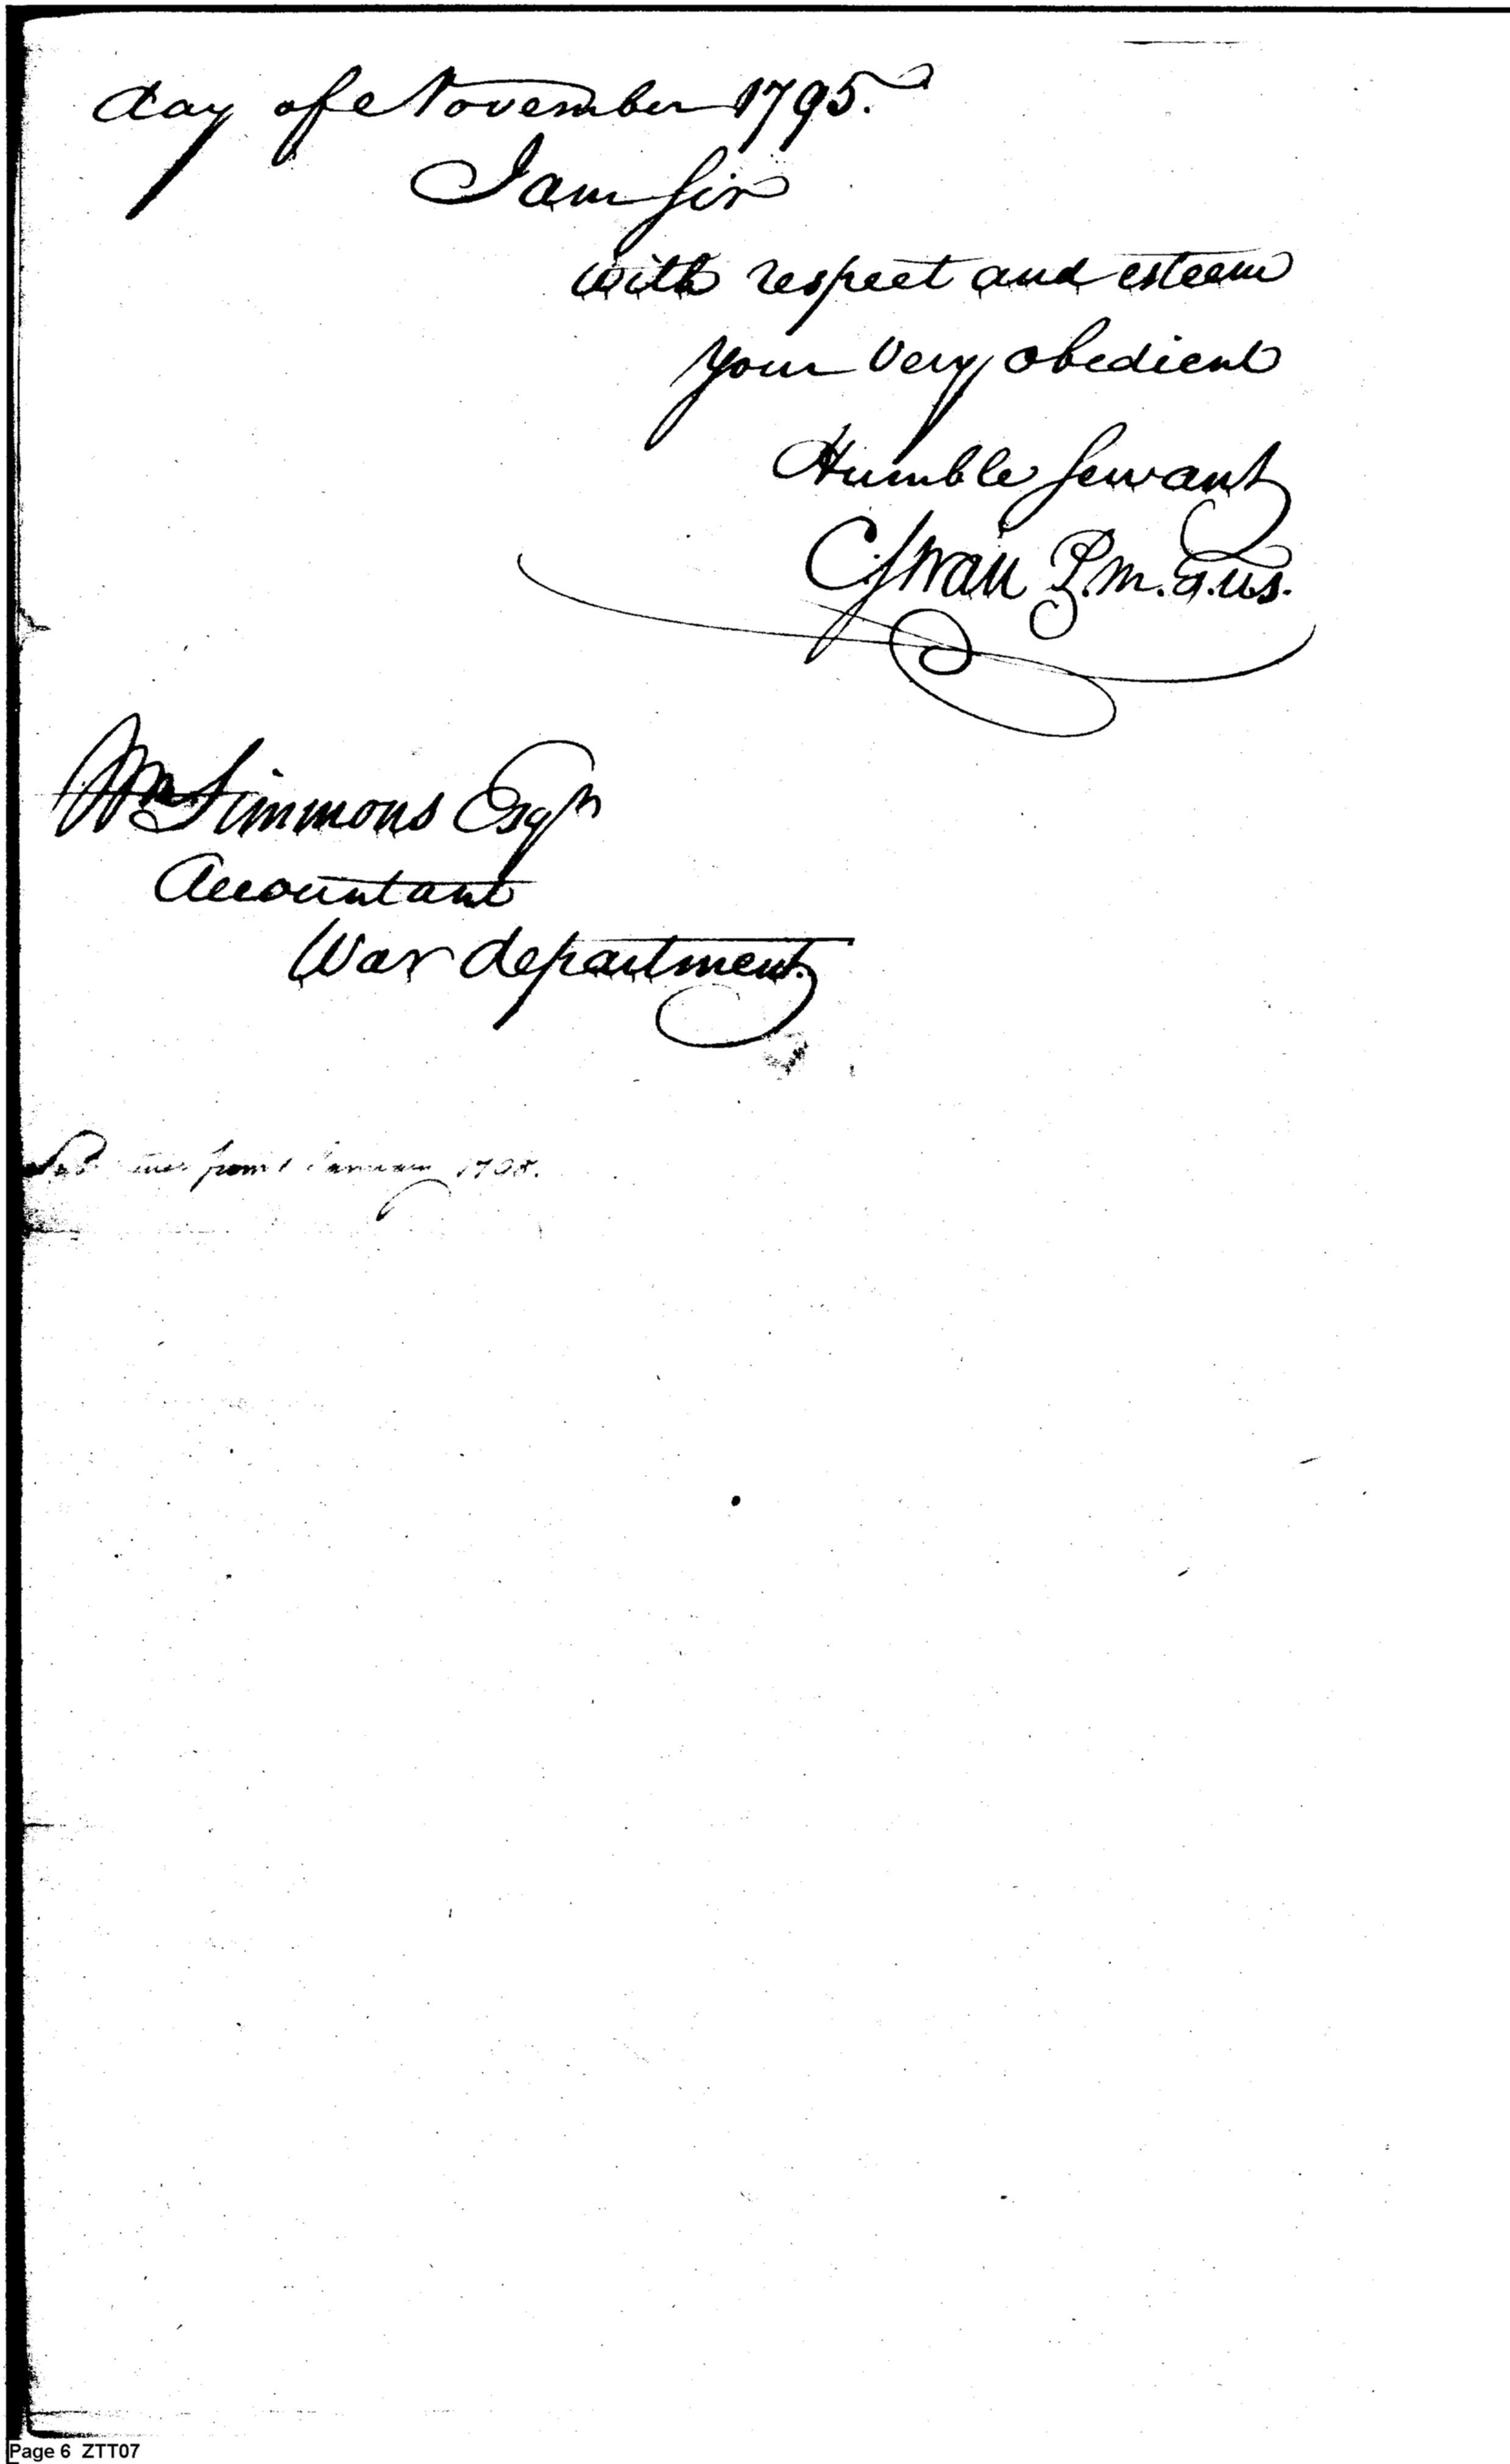 day of November 1795.
I am Sir
with respect and esteem
your Very obedient
Humble Servant
C. Swan P.M.a.us.
Wm Simmons Esqr
Accountant
War department.
from 1 January
Page 6 ZTT07